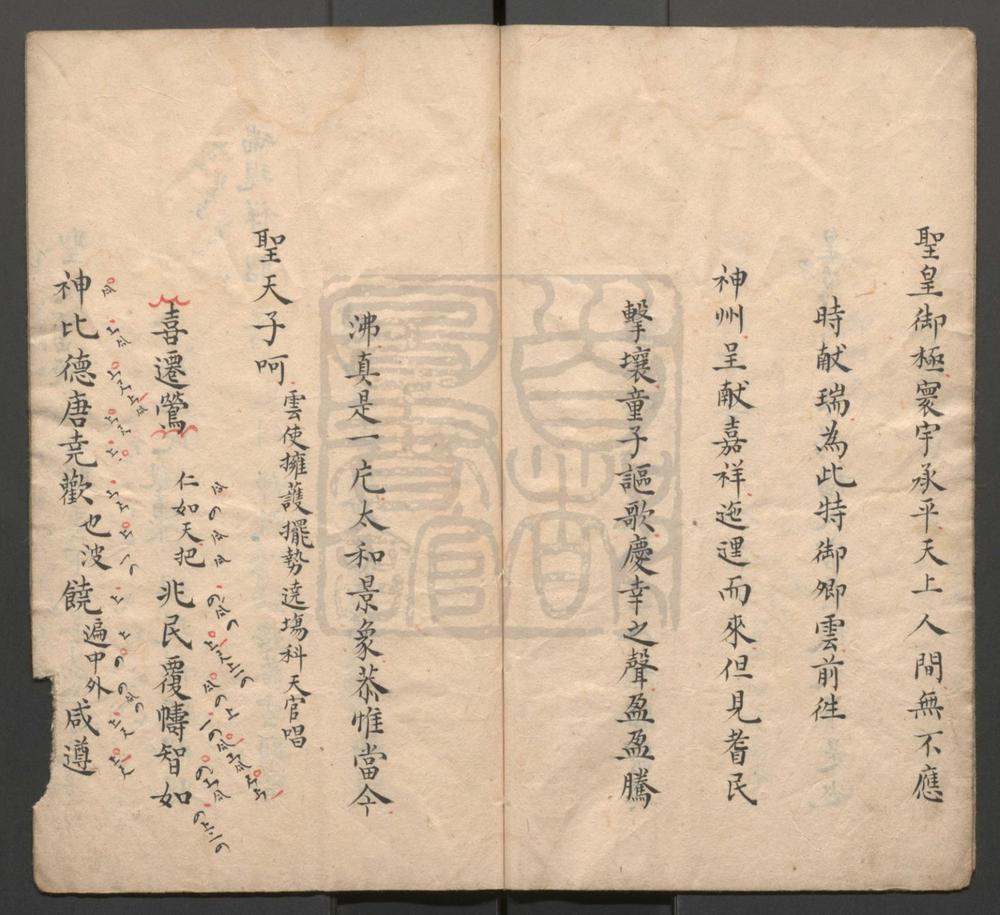 聖皇御極寰宇承平天上人間無不應
時献瑞為此特御卿雲前徃
神州呈献嘉祥迤逦而來但見耆民
擊壤童子謳歌慶幸之聲盈盈騰
沸真是一庀太和景象恭惟當今
聖天子呵雲使擁護擺勢遶塲科天官唱
喜遷鶯仁如天把兆民覆幬智如
神比德唐尭歡也波饒遍中外咸遵